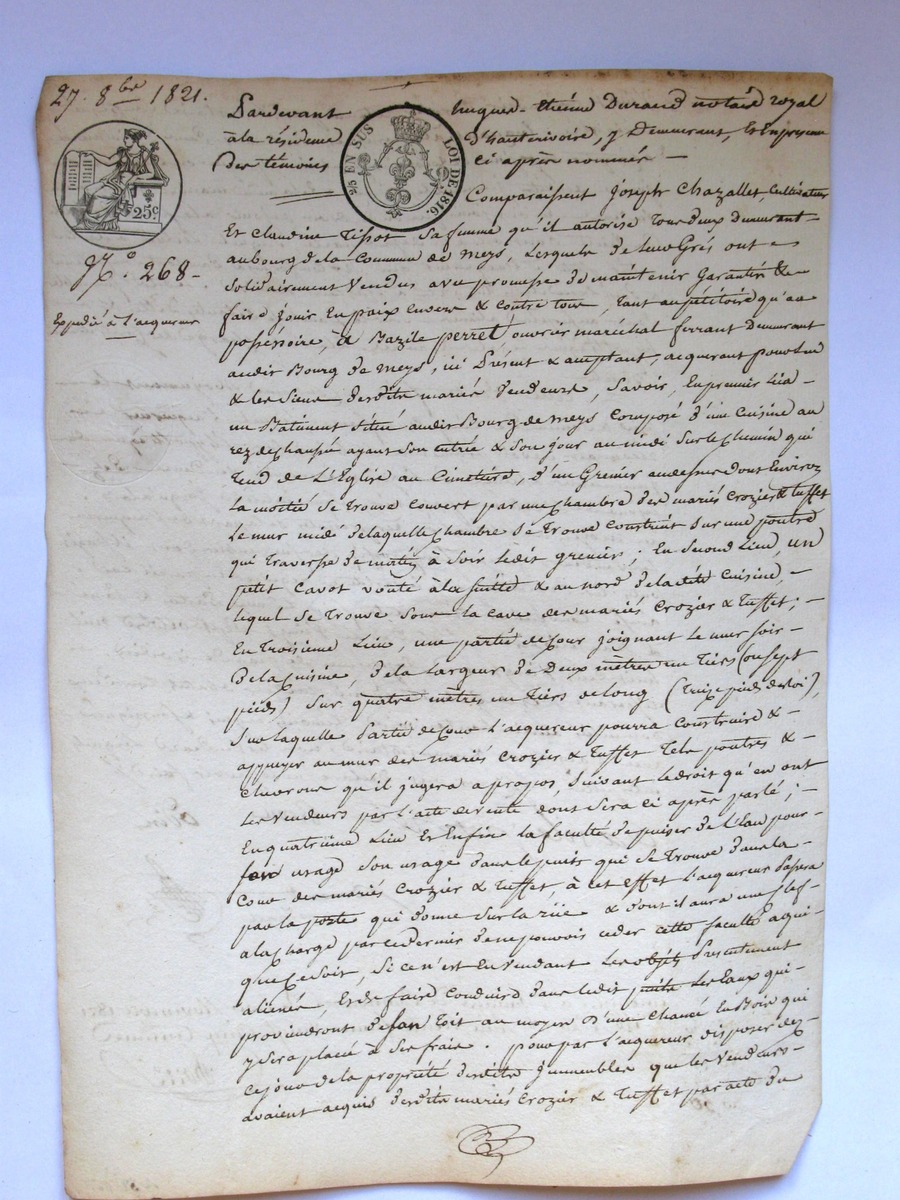 27. 8bre 1821.
Pardevant hugues-thiène Durand notaire royal
à la résidence D'hauterivoire, y Demeurant, & En présence
Des témoins ci après nommés —
EN SUS LOI DE 1816.
25c
N.° 268 -
Expédié à l'acquereur
Comparaissent joseph Chazallet, Cultivateur
Et Claudine Tissot Sa femme qu'il autorise tous deux Demeurant
au bourg de la Commune de meys, Lesquels de leur Grés ont -
Solidairement Vendus avec promesse De maintenir Garantir & -
faire jouir En paix Envers & Contre tous, tant au pétitoire qu'au
possessoire, à Bazile perret, ouvrier maréchal ferrant Demeurant
audit Bourg de meys, ici Présent & acceptant, acquerant pour lui
& les Siens desdits mariés Vendeurs, Savoir, En premier Lieu -
un Batiment Situé audit Bourg de meys Composé D'une Cuisine au
rez de Chaussé ayant Son entrée & Son jour au midi Sur le Chemin qui
Tend de L'Eglise au Cimetière, d'un Grenier au dessus dont Environ
La moitié Se trouve Couvert par une Chambre des mariés Crozier & tuffet
Le mur midi de laquelle Chambre Se Trouve Construit Sur une poutre
qui Traverse de matin à Soir ledit grenier; En Second Lieu, un
petit Cavot vouté à la Suitte & au nord de la dite Cuisine, -
lequel Se Trouve Sous la cave des mariés Crozier & Tuffet; -
En Troisieme Lieu, une partie de Cour joignant Le mur Soir -
De la Cuisine, de la Largeur de Deux mètres un Tiers (ou Sept
pieds) Sur quatre mètres un Tiers de long (Treize pieds de Roi),
Sur laquelle Partie de Cour L'acquereur pourra Construire & -
appuyer au mur des mariés Crozier & Tuffet Tels poutres & -
Chevrons qu'il jugera a propos, Suivant le droit qu'en ont
Les Vendeurs par L'acte de vente dont Sera Ci après parlé; -
En quatrième Lieu Et Enfin La faculté de puiser de L'Eau pour -
son usage dans le puits qui Se Trouve dans la -
Cour des mariés Crozier & Tuffet, à cet Effet L'acquereur Passera
par la porte qui donne Sur la rüe & dont il aura une Clef -
a la Charge par ce dernier de ne pouvoir céder cette faculté a qui -
que Ce Soit, Si ce n'est En Vendant Les objets Présentement
aliénés, Et de faire Conduire dans le dit puits Les Eaux qui -
proviendront de Son Toit au moyen D'une Chanée En Bois qui
y Sera placé à Ses frais. pour par L'acquereur disposer dez -
Ce jour de la propriété desdits Immeubles que les Vendeurs -
avaient acquis desdits mariés Crozier & Tuffet par acte du